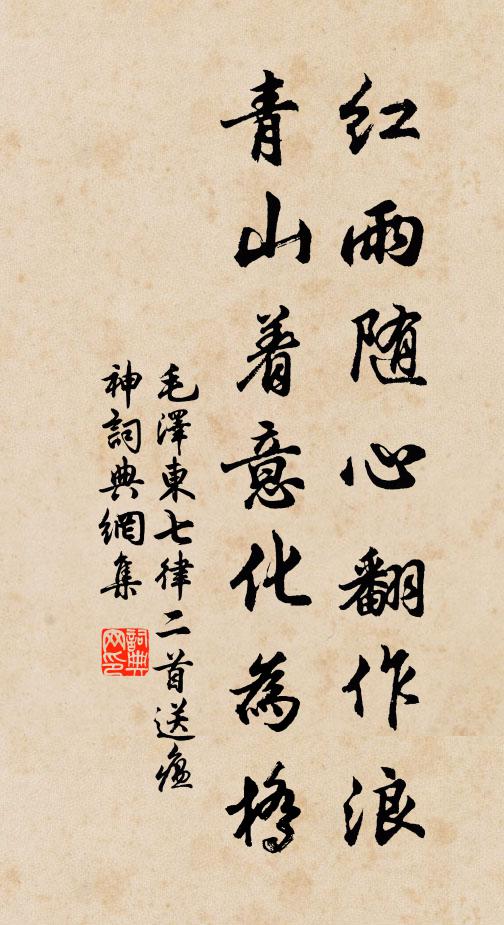 红雨随心翻作浪
青山着意化為橋
毛澤東七律二首送瘟
神詞典網集
詞典
网印